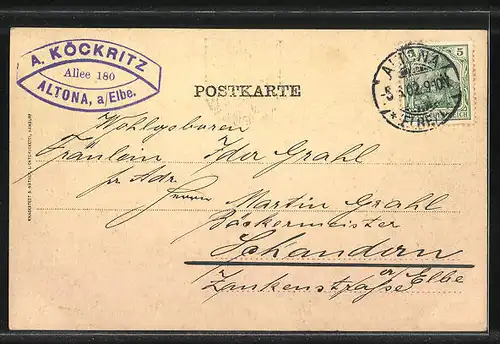 A. KÖCKRITZ
Allee 180
ALTONA, a/Elbe.
POSTKARTE
ALTONA
5
* (ELBE)
Wohlgeboren
Fräulein Ida Grahl
pr Adr.
Herrn Martin Grahl
Bäckermeister
Schandau
a/Elbe
Zaukenstraße